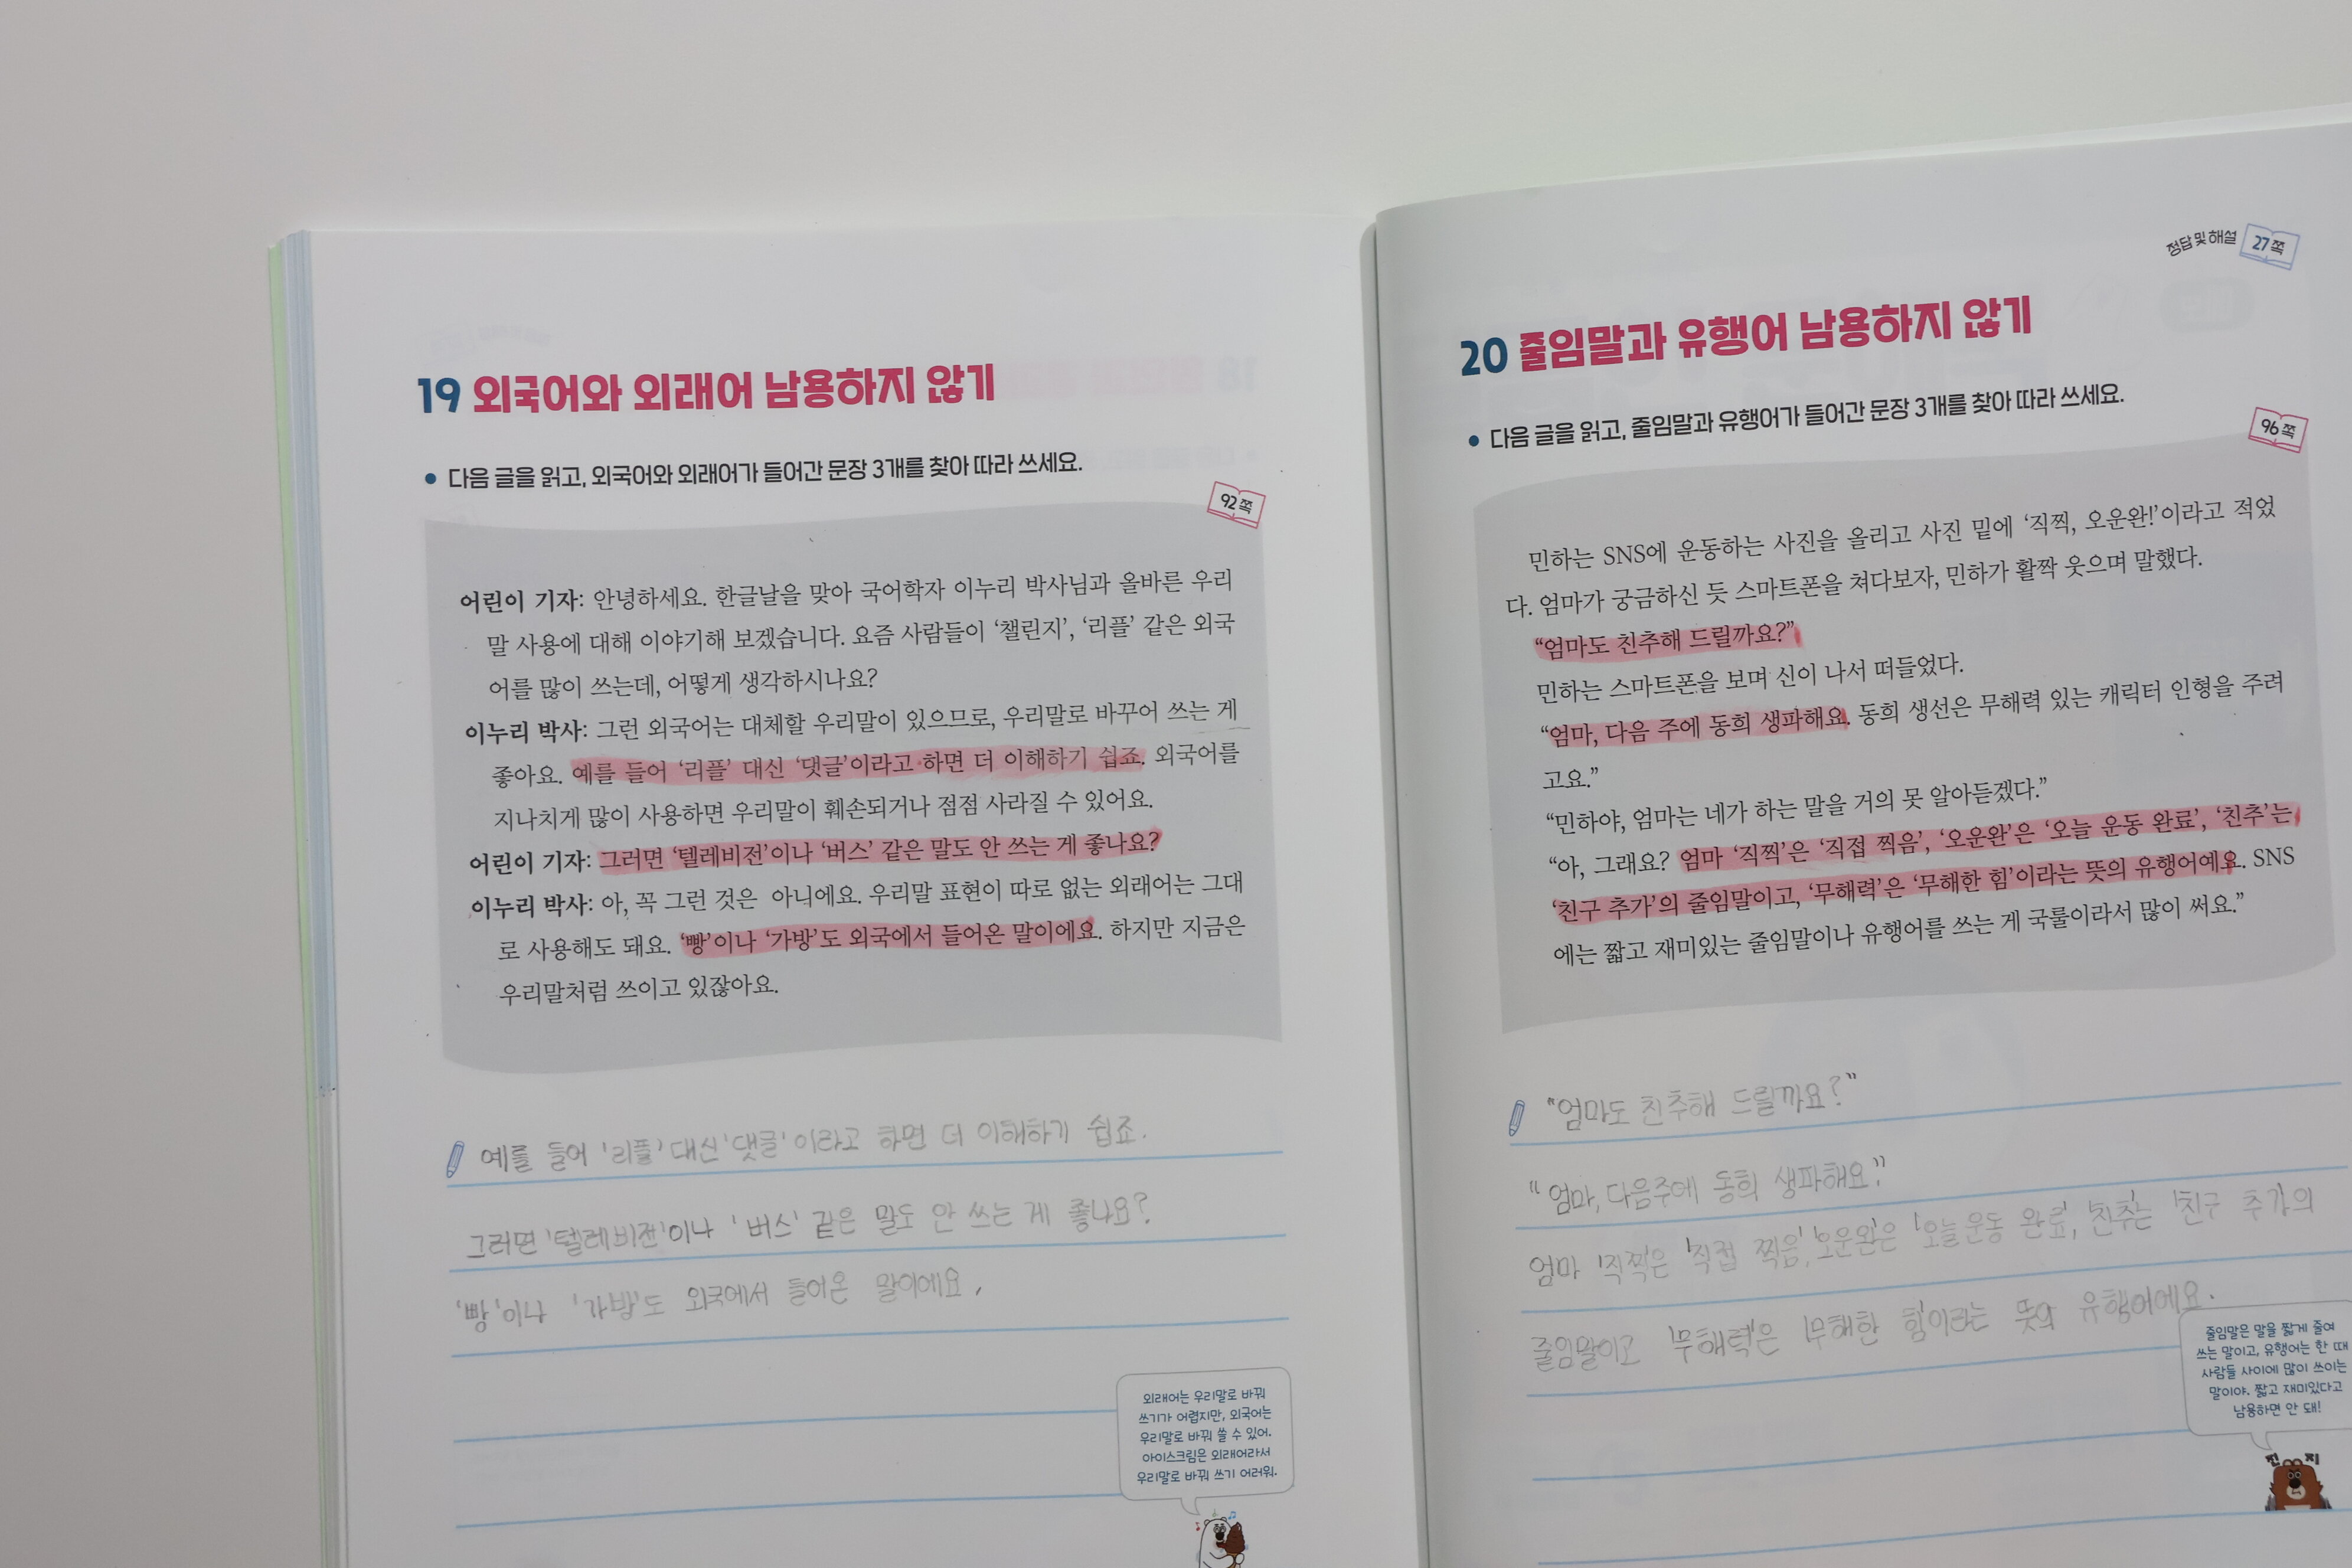 19 외국어와 외래어 남용하지 않기
• 다음 글을 읽고, 외국어와 외래어가 들어간 문장 3개를 찾아 따라 쓰세요.
92쪽
어린이 기자: 안녕하세요. 한글날을 맞아 국어학자 이누리 박사님과 올바른 우리
말 사용에 대해 이야기해 보겠습니다. 요즘 사람들이 ‘챌린지’, ‘리플’ 같은 외국
어를 많이 쓰는데, 어떻게 생각하시나요?
이누리 박사: 그런 외국어는 대체할 우리말이 있으므로, 우리말로 바꾸어 쓰는 게
좋아요. 예를 들어 ‘리플’ 대신 ‘댓글’이라고 하면 더 이해하기 쉽죠. 외국어를
지나치게 많이 사용하면 우리말이 훼손되거나 점점 사라질 수 있어요.
어린이 기자: 그러면 ‘텔레비전’이나 ‘버스’ 같은 말도 안 쓰는 게 좋나요?
이누리 박사: 아, 꼭 그런 것은 아니에요. 우리말 표현이 따로 없는 외래어는 그대
로 사용해도 돼요. ‘빵’이나 ‘가방’도 외국에서 들어온 말이에요. 하지만 지금은
우리말처럼 쓰이고 있잖아요.
예를 들어 '리플' 대신 '댓글' 이라고 하면 더 이해하기 쉽죠.
그러면 '텔레비전'이나 '버스' 같은 말도 안 쓰는 게 좋나요?
'빵'이나 '가방'도 외국에서 들어온 말이에요.
외래어는 우리말로 바꿔
쓰기가 어렵지만, 외국어는
우리말로 바꿔 쓸 수 있어.
아이스크림은 외래어라서
우리말로 바꿔 쓰기 어려워.
정답 및 해설 27쪽
20 줄임말과 유행어 남용하지 않기
• 다음 글을 읽고, 줄임말과 유행어가 들어간 문장 3개를 찾아 따라 쓰세요.
96쪽
민하는 SNS에 운동하는 사진을 올리고 사진 밑에 ‘직찍, 오운완!’이라고 적었
다. 엄마가 궁금하신 듯 스마트폰을 쳐다보자, 민하가 활짝 웃으며 말했다.
“엄마도 친추해 드릴까요?”
민하는 스마트폰을 보며 신이 나서 떠들었다.
“엄마, 다음 주에 동희 생파해요. 동희 생선은 무해력 있는 캐릭터 인형을 주려
고요.”
“민하야, 엄마는 네가 하는 말을 거의 못 알아듣겠다.”
“아, 그래요? 엄마 ‘직찍’은 ‘직접 찍음’, ‘오운완’은 ‘오늘 운동 완료’, ‘친추’는
‘친구 추가’의 줄임말이고, ‘무해력’은 ‘무해한 힘’이라는 뜻의 유행어예요. SNS
에는 짧고 재미있는 줄임말이나 유행어를 쓰는 게 국룰이라서 많이 써요.”
"엄마도 친추해 드릴까요?"
"엄마, 다음주에 동희 생파해요."
엄마 '직찍'은 '직접 찍음', '오운완'은 '오늘 운동 완료', '친추'는 '친구 추가'의
줄임말이고 '무해력'은 '무해한 힘'이라는 뜻의 유행어에요.
줄임말은 말을 짧게 줄여
쓰는 말이고, 유행어는 한 때
사람들 사이에 많이 쓰이는
말이야. 짧고 재미있다고
남용하면 안 돼!
진 지